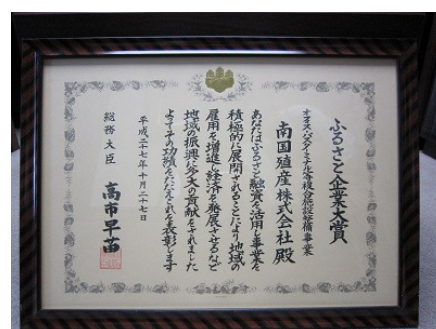 ふるさと企業大賞
南国殖産株式会社 殿
あなたはふるさと融資を活用し事業を
積極的に展開されることにより地域の
雇用を増進し経済を発展させるなど
地域の振興に多大の貢献をされました
よってその功績をたたえこれを表彰します
平成二十七年十月二十七日
総務大臣 高市早苗